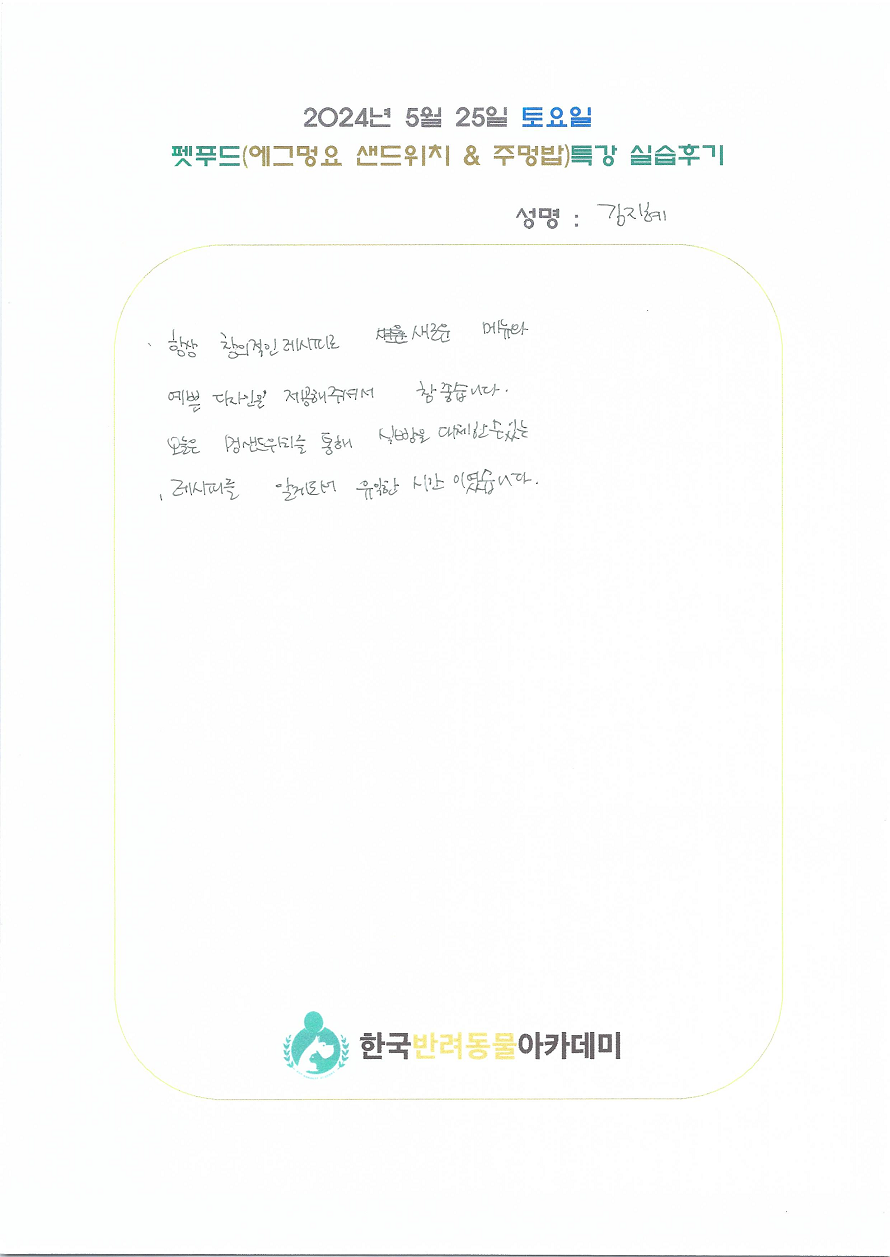 2024년 5월 25일 토요일
펫푸드(에그멍요 샌드위치 & 주멍밥)특강 실습후기
성명 : 김지혜
항상 창의적인 레시피로 새로운 메뉴와
예쁜 디자인을 제공해주셔서 참 좋습니다.
오늘은 멍샌드위치를 통해 식빵을 대체할 수 있는
레시피를 알게되어 유익한 시간 이였습니다.
한국반려동물아카데미